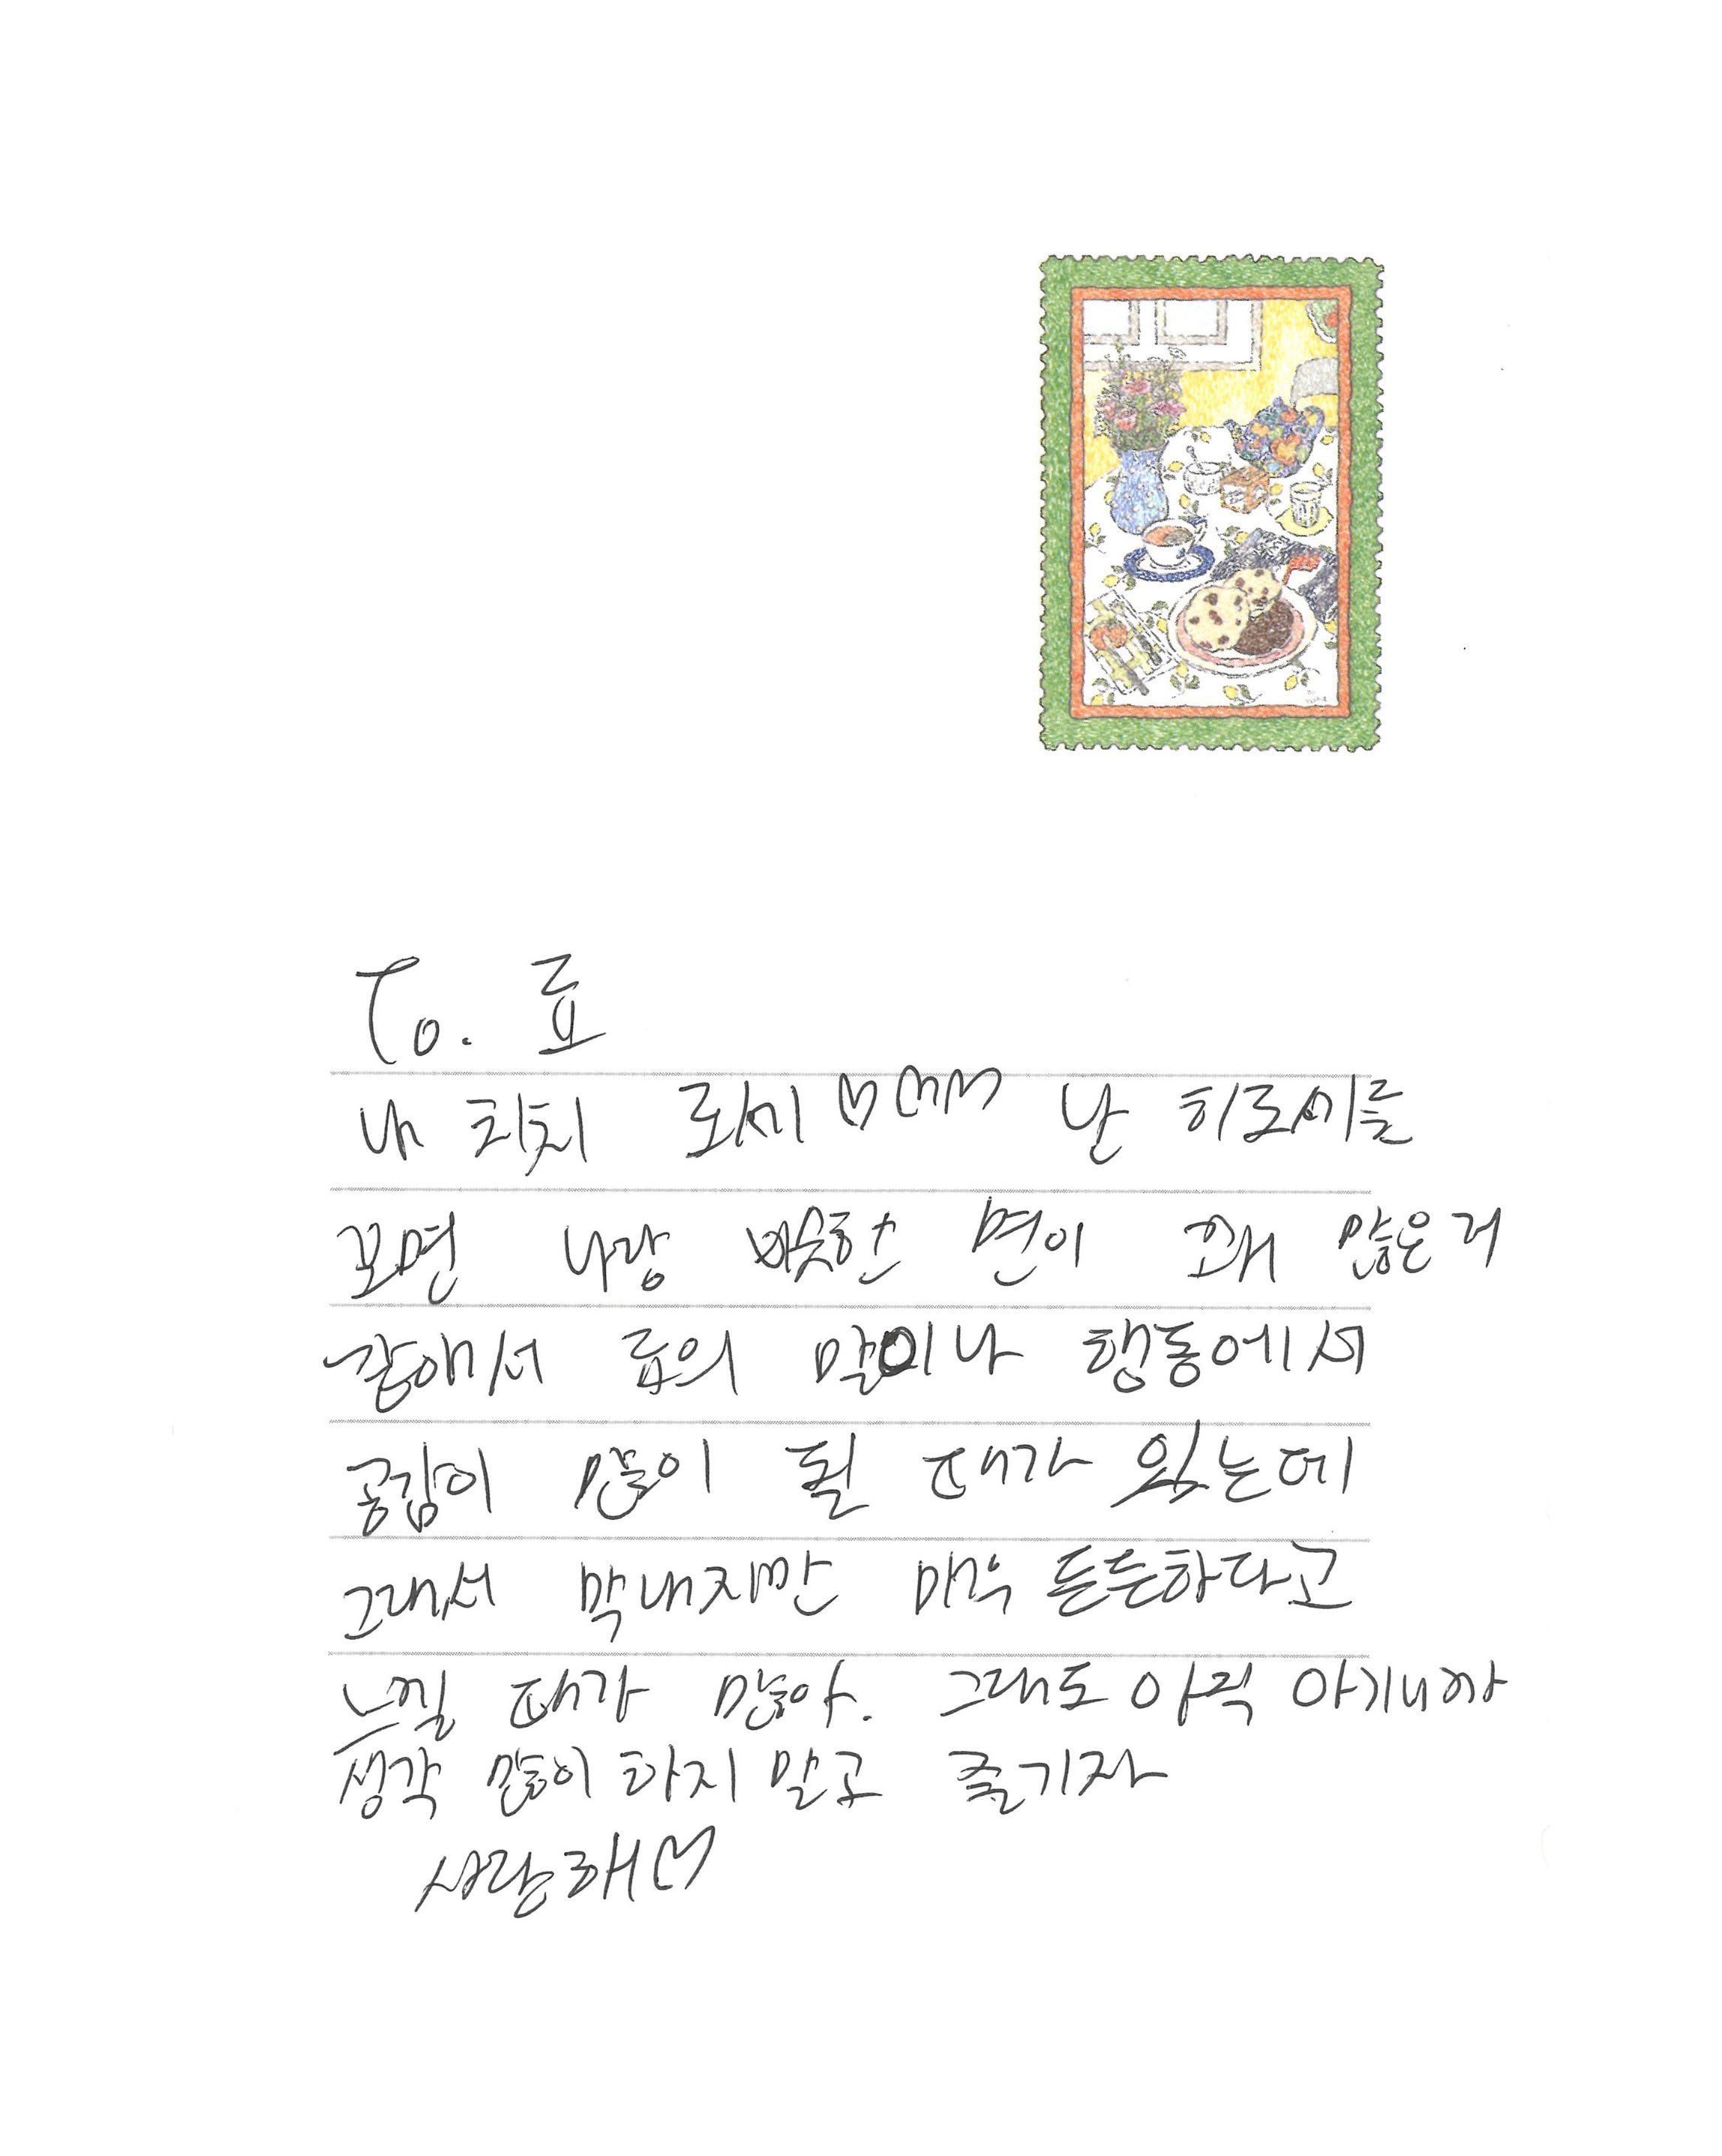 To. 료
내 치치 로세 ♡♡♡ 난 히로세를
보면 나랑 비슷한 면이 꽤 많은 거
같애서 료의 말이나 행동에서
공감이 많이 될 때가 있는데
그래서 막내지만 매우 든든하다고
느낄 때가 많아. 그래도 아직 아기니까
생각 많이 하지 말고 즐기자
사랑해♡